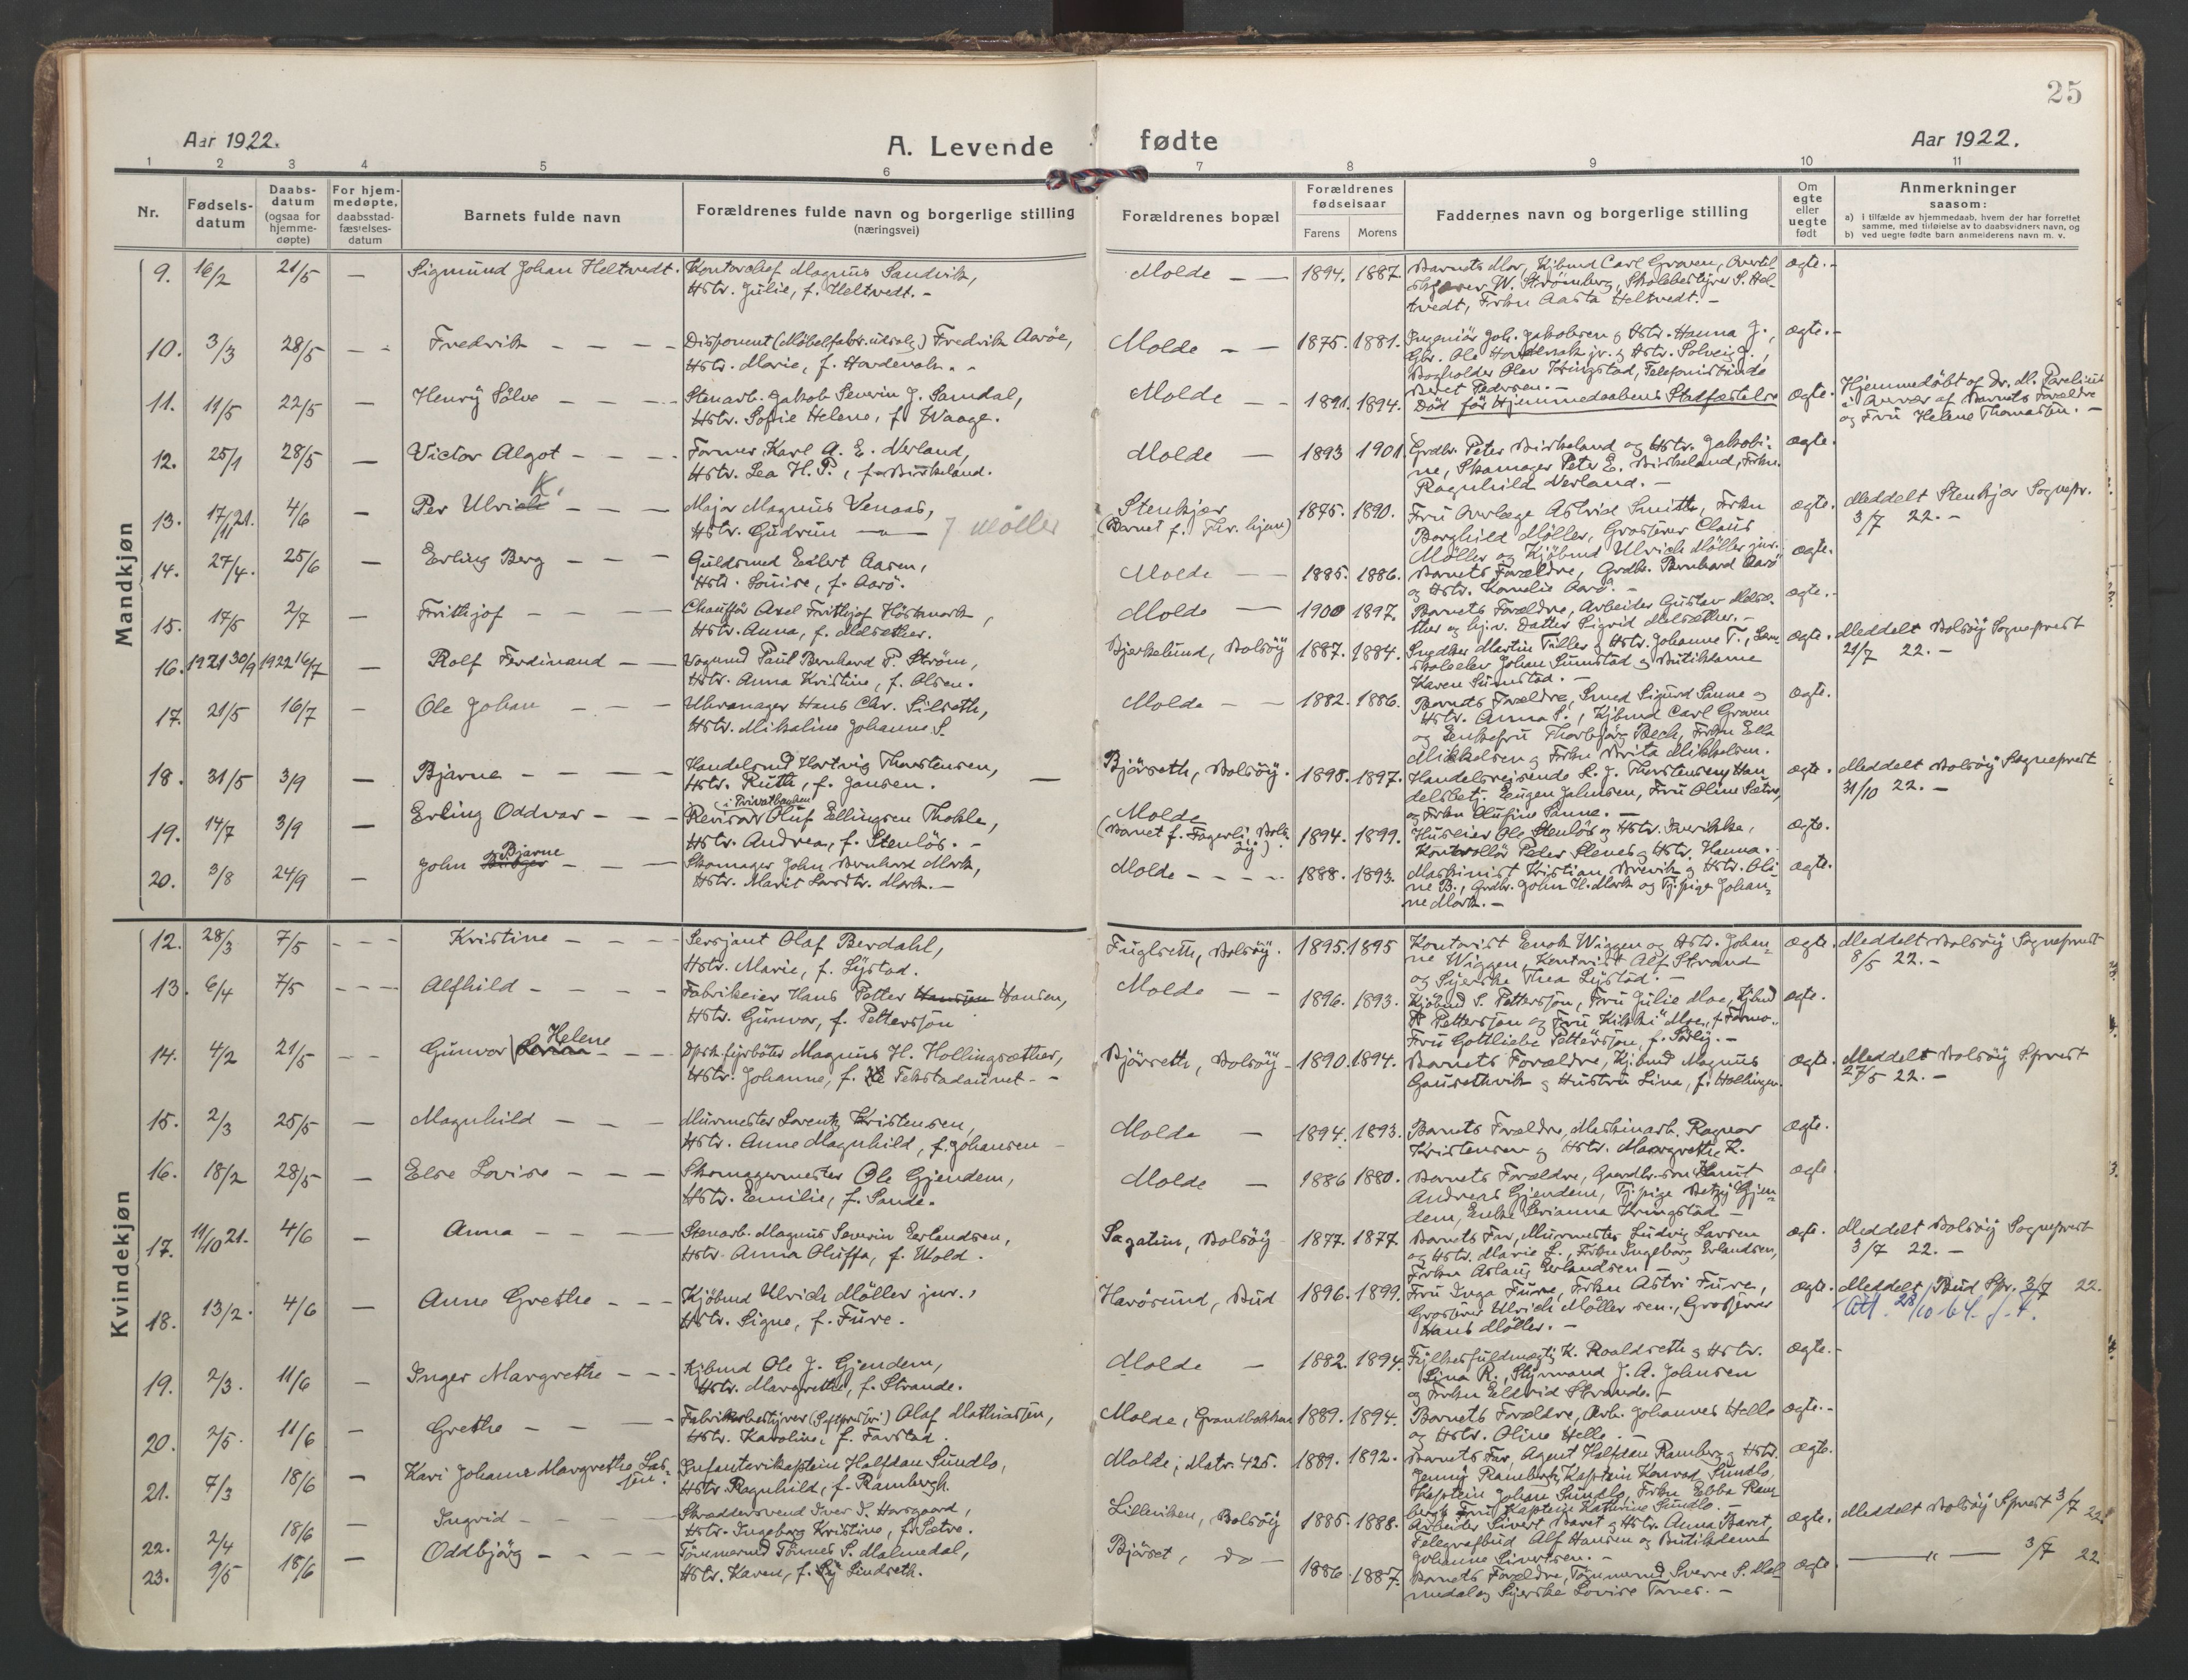 25
Aar 1922.
A. Levende fødte
Aar 1922.
1 2 3 4 5 6 7 8 9 10 11
Nr.
Fødsels-
datum
Daabs-
datum
(ogsaa for
hjemme-
døpte)
For hjem-
medøpte,
daabsstad-
fæstelses-
datum
Barnets fulde navn
Forældrenes fulde navn og borgerlige stilling
(næringsvei)
Forældrenes bopæl
Forældrenes
fødselsaar
Farens
Morens
Faddernes navn og borgerlige stilling
Om
egte
eller
uegte
født
Anmerkninger
saasom:
a) i tilfælde av hjemmedaab, hvem der har forrettet
samme, med tilføielse av to daabsvidners navn, og
b) ved uegte fødte barn anmelderens navn m. v.
Mandkjøn
9. 16/2 21/5 — Sigmund Johan Heltvedt. Kontorchef Magnus Sandvik,
Hstr. Julie, f. Heltvedt. –
Molde — 1894. 1887. Barnets Mor, Kjbmd Carl Graven, Overtil-
W. Strømberg, Skolebestyrer S. Hel-
tvedt, Frkn Aasta Heltvedt. –
ægte. –
10. 3/3 28/5 – – Fredrik – – – Disponent (Møbelfabr. utsalg) Fredrik Aarøe,
Hstr. Marie, f. Hardevak. –
Molde – – 1875. 1881. Ingeniør Joh. Jakobsen & Hstr. Hanna J.,
Gbr. Ole Hardevak jr. & Hstr. Solveig J.,
Bogholder Olav Kringstad, Telefonistinde
Beret Pedersen. –
ægte. –
11. 11/5 22/5 — Henry Sölve – – – Stenarb. Jakob Severin J. Samdal,
Hstr. Sofie Helene, f. Waage.
Molde – – 1891. 1894. Död för Hjemmedaabens Stadfæstelse
ægte. Hjemmedöbt af Dr. M.
i Nærvær af Barnets Forældre
og Fru Helene Thomassen. –
12. 25/1 28/5 — Victor Algot – – – Former Karl A. E. Nerland,
Hstr. Lea H. P., f. Birkeland.
Molde — 1893 1901. Grdbr. Peter Birkeland og Hstr. Jakobi-
ne, Skomager Peter E. Birkeland, Frkn.
Ragnhild Nerland. –
ægte.
13. 17/11 21. 4/6 — Per Ulrich K. – – Major Magnus Venaas,
Hstr. Gudrun —"— f Møller
Stenkjær
(Barnet f. Thr. hjem) 1875. 1890. Fru Overlæge Astrid Smitt, Frkn
Borghild Möller, Grosserer Claus
Möller og Kjöbmd Ulrich Möller jur.
ægte. Meddelt Stenkjær Sognepr.
3/7 22. –
14. 27/4. 25/6 — Erling Berg – – Guldsmed Edbert Aasen,
Hstr. Louise, f. Aarö.
Molde — 1885. 1886. Barnets Forældre, Grdbr. Bernhard Aarö
og Hstr. Kornelie Aarö. –
ægte.
15. 17/5 2/7 — Frithjof – – – Chauffør Axel Frithjof Höstmark,
Hstr. Anna, f. Melsæther.
Molde — 1900 1897. Barnets Forældre, Arbeider Gustav Melsæ-
ther og hj.v. Datter Sigrid Melsæther. –
ægte. –
16. 1921 30/9 1922 16/7 — Rolf Ferdinand – – Vognmd Paul Bernhard P. Ström,
Hstr. Anna Kristine, f. Olsen.
Bjerkelund, Bolsöy 1887. 1884. Snedker Martin Tiller & Hstr. Johanne T.,
Johan Sunstad & Butikdame
Karen Sunstad. –
ægte. Meddelt Bolsöy Sogneprest
21/7 22. –
17. 21/5 16/7 – Ole Johan – – – Uhrmager Hans Chr. Silseth,
Hstr. Mikaline Johanne S.
Molde – – 1882. 1886. Barnets Forældre, Smed Sigurd Sanne og
Hstr. Anna S., Kjbmd Carl Graven
og Enkefru Thorbjørg Bech, Frkn Ella
Mikkelsen & Frkn Brita Mikkelsen.
ægte.
18. 31/5 3/9 — Bjarne – – – Handelsmd Hartvig Thorstensen,
Hstr. Ruth, f. Jansen. —
Bjørseth, Bolsöy. 1898. 1897. Handelsreisende L. J. Thorstensen, Han-
delsbetj. Eugen Jahnsen, Fru Oline Sætre,
og Frkn Olufine Sanne. –
ægte. Meddelt Bolsöy Sogneprest
31/10 22. –
19. 14/7 3/9 — Erling Oddvar – – – i Privatbanken
Revisor Oluf Ellingsen Thokle,
Hstr. Andrea, f. Stenlös. –
Molde
(Barnet f. Fagerli, Bols-
öy). 1894. 1899. Huseier Ole Stenlös & Hstr. Sverikke,
Kontrollør Peder Stenes & Hstr. Hanna.
ægte.
20. 3/8 24/9 — John Birger Bjarne – – Skomager John Bernhard Mork,
Hstr. Marit Larsdtr. Mork. –
Molde – – – 1888. 1893. Maskinist Kristian Brevik & Hstr. Oli-
ne B., Grdbr. John H. Mork og Tj.pige Johan-
ne Mork. –
ægte.
Kvindekjøn
12. 28/3 7/5 – – – Kristine – – – Sersjant Olaf Berdahl,
Hstr. Marie, f. Systad.
Fuglseth, Bolsöy. 1895. 1895 Kontorist Enok Wiggen og Hstr. Johan-
ne Wiggen, Kontorist Alf Strand
og Syerske Thea Systad. –
ægte. Meddelt Bolsöy Sogneprest
8/5 22. –
13. 6/4 7/5 – – – Alfhild – – – – Fabrikeier Hans Petter Hansen Hansen,
Hstr. Gunvor, f. Pettersson
Molde – – 1896. 1893. Kjøbmd S. Pettersson, Fru Julie Moe, Kjbmd
Pettersson og Fru Kikki Moe, f.
Fru Gottliebe Pettersson, f. Sörliy. –
ægte.
14. 4/2 21/5 – – Gunvor Helene – – Dpsk. fyrböter Magnus H. Hollingsæther,
Hstr. Johanne, f. Tekstadaunet – –
Bjørseth, Bolsöy – 1890. 1894. Barnets Forældre, Kjbmd Magnus
Gausethvik & Hustru Lina, f. Hollings.
ægte. Meddelt Bolsöy Sprest
27/5 22. –
15. 2/3 25/5 — Magnhild – – – Murmester Lorentz Kristensen,
Hstr. Anne Magnhild, f. Johansen –
Molde — 1894. 1893. Barnets Forældre, Maskinarb. Ragnar
Kristensen & Hstr. Margrethe K.
ægte.
16. 18/2 28/5 — Else Lovise – – – Skomagermester Ole Gjendem,
Hstr. Emilie, f. Sande.
Molde — 1886 1880. Barnets Forældre, Gaardbr. søn Knut
Andreas Gjendem, Tj.pige Betzy Gjen-
dem, Enke Serianna Kringstad –
ægte
17. 11/10 21. 4/6 — Anna – – – Stenarb. Magnus Severin Erlandsen,
Hstr. Anna Oluffa, f. Wold.
Sagatun, Bolsöy 1877. 1877. Barnets Far, Murmester Ludvig Larsen
og Hstr. Marie L., Frkn Ingeborg Erlandsen,
Frkn Aslaug Erlandsen. –
ægte. Meddelt Bolsöy Sogneprest
3/7 22. –
18. 13/2. 4/6 — Anne Grethe – – – Kjöbmd Ulrich Möller jur.,
Hstr. Signe, f. Füre.
Harösund, Bud 1896. 1899. Fru Inga Füre, Frkn Astri Füre,
Grosserer Ulrich Möller sen., Grosserer
Hans Möller. –
ægte. Meddelt Bud Spr. 3/7 22.
Att. 28/10-64.
19. 2/3. 11/6 — Inger Margrethe – – – Kjbmd Ole J. Gjendem,
Hstr. Margrethe, f. Strande.
Molde — 1882. 1894. Fylkesfuldmægtig K. Roaldseth & Hstr.
Lina R., Styrmand J. A. Johnsen
og Frkn Eldrid Strande. –
ægte. –
20. 2/5. 11/6 — Grethe – – – Fabrikbestyrer Olaf Mathiassen,
Hstr. Karoline, f. Farstad.
Molde, Grandbakken 1889. 1894. Barnets Forældre, Arb. Johannes Helle
og Hstr. Oline Helle. –
ægte. –
21. 7/3 18/6 — Kari Johanne Margrethe Las-
sen. Infanterikaptein Halfdan Sundlo,
Hstr. Ragnhild, f. Rambergh.
Molde; Matr. 425. 1889. 1892. Barnets Far, Agent Halfdan Ramberg & Hstr.
Jenny Rambergh, Kaptein Konrad Sundlo,
Kaptein Johan Sundlo, Frkn Ebba Ram-
bergh Fru Kaptein Kathrine Sundlo. –
ægte.
22. 2/4 18/6 — Ingrid – – – – Skreddersvend Iver D. Horsgaard,
Hstr. Ingeborg Kristine, f. Sætre.
Lilleviken, Bolsöy 1885. 1888. Arbeider Sivert Baret & Hstr. Anna Baret,
Telegrafbud Alf Hansen og Butikdame
Johanne Sivertsen. –
ægte. Meddelt Bolsöy Sprest 3/7 22.
23. 9/5 18/6 — Oddbjörg – – – – Tömmermd Tönnes S. Malmedal,
Hstr. Karen, f. Lindseth.
Bjørset, do – 1886 1887. Barnets Forældre, Tömmermd Sverre S. Mal-
medal og Syerske Lovise Tornes. –
ægte. —"— 3/7 22